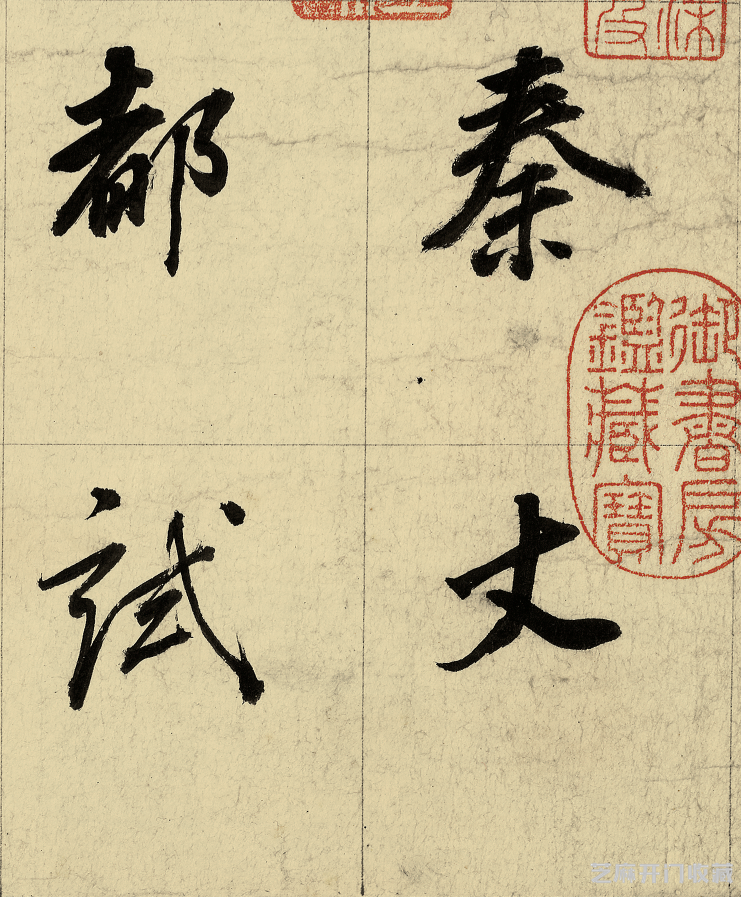 秦丈
都試
御書房
鑑藏寶
芝麻开门收藏